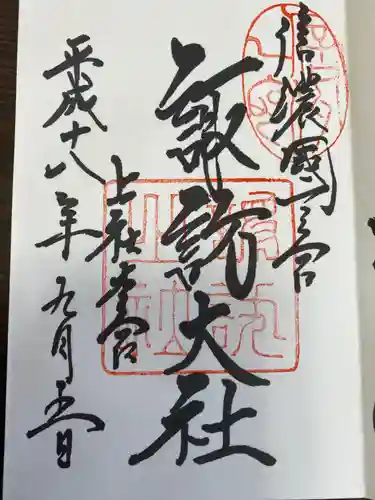 信濃國一之宮
諏訪大社
上社本宮
平成十八年九月五日